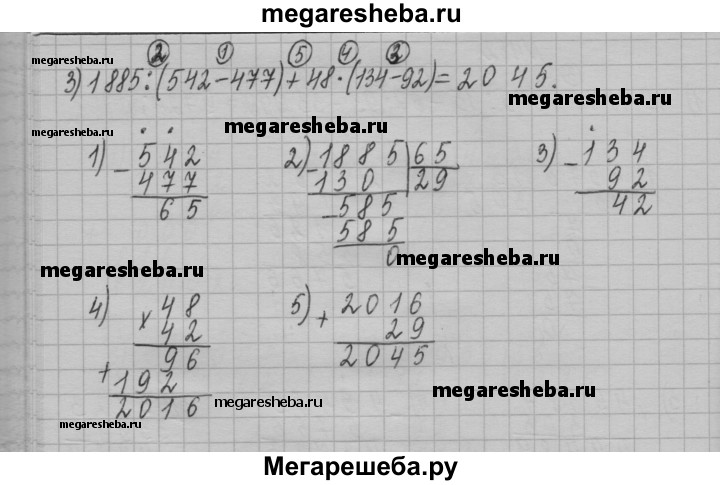 megaresheba.ru
2 1 5 4 3
3) 1885:(542-477)+48·(134-92)=2045.
megaresheba.ru
megaresheba.ru
megaresheba.ru
megaresheba.ru
1) - 542
477
65
2) - 1885 65
130 29
- 585
585
0
3) - 134
92
42
megaresheba.ru
megaresheba.ru
4) × 48
42
96
+ 192
2016
5) + 2016
29
2045
megaresheba.ru
megaresheba.ru
megaresheba.ru
Мегарешеба.ру